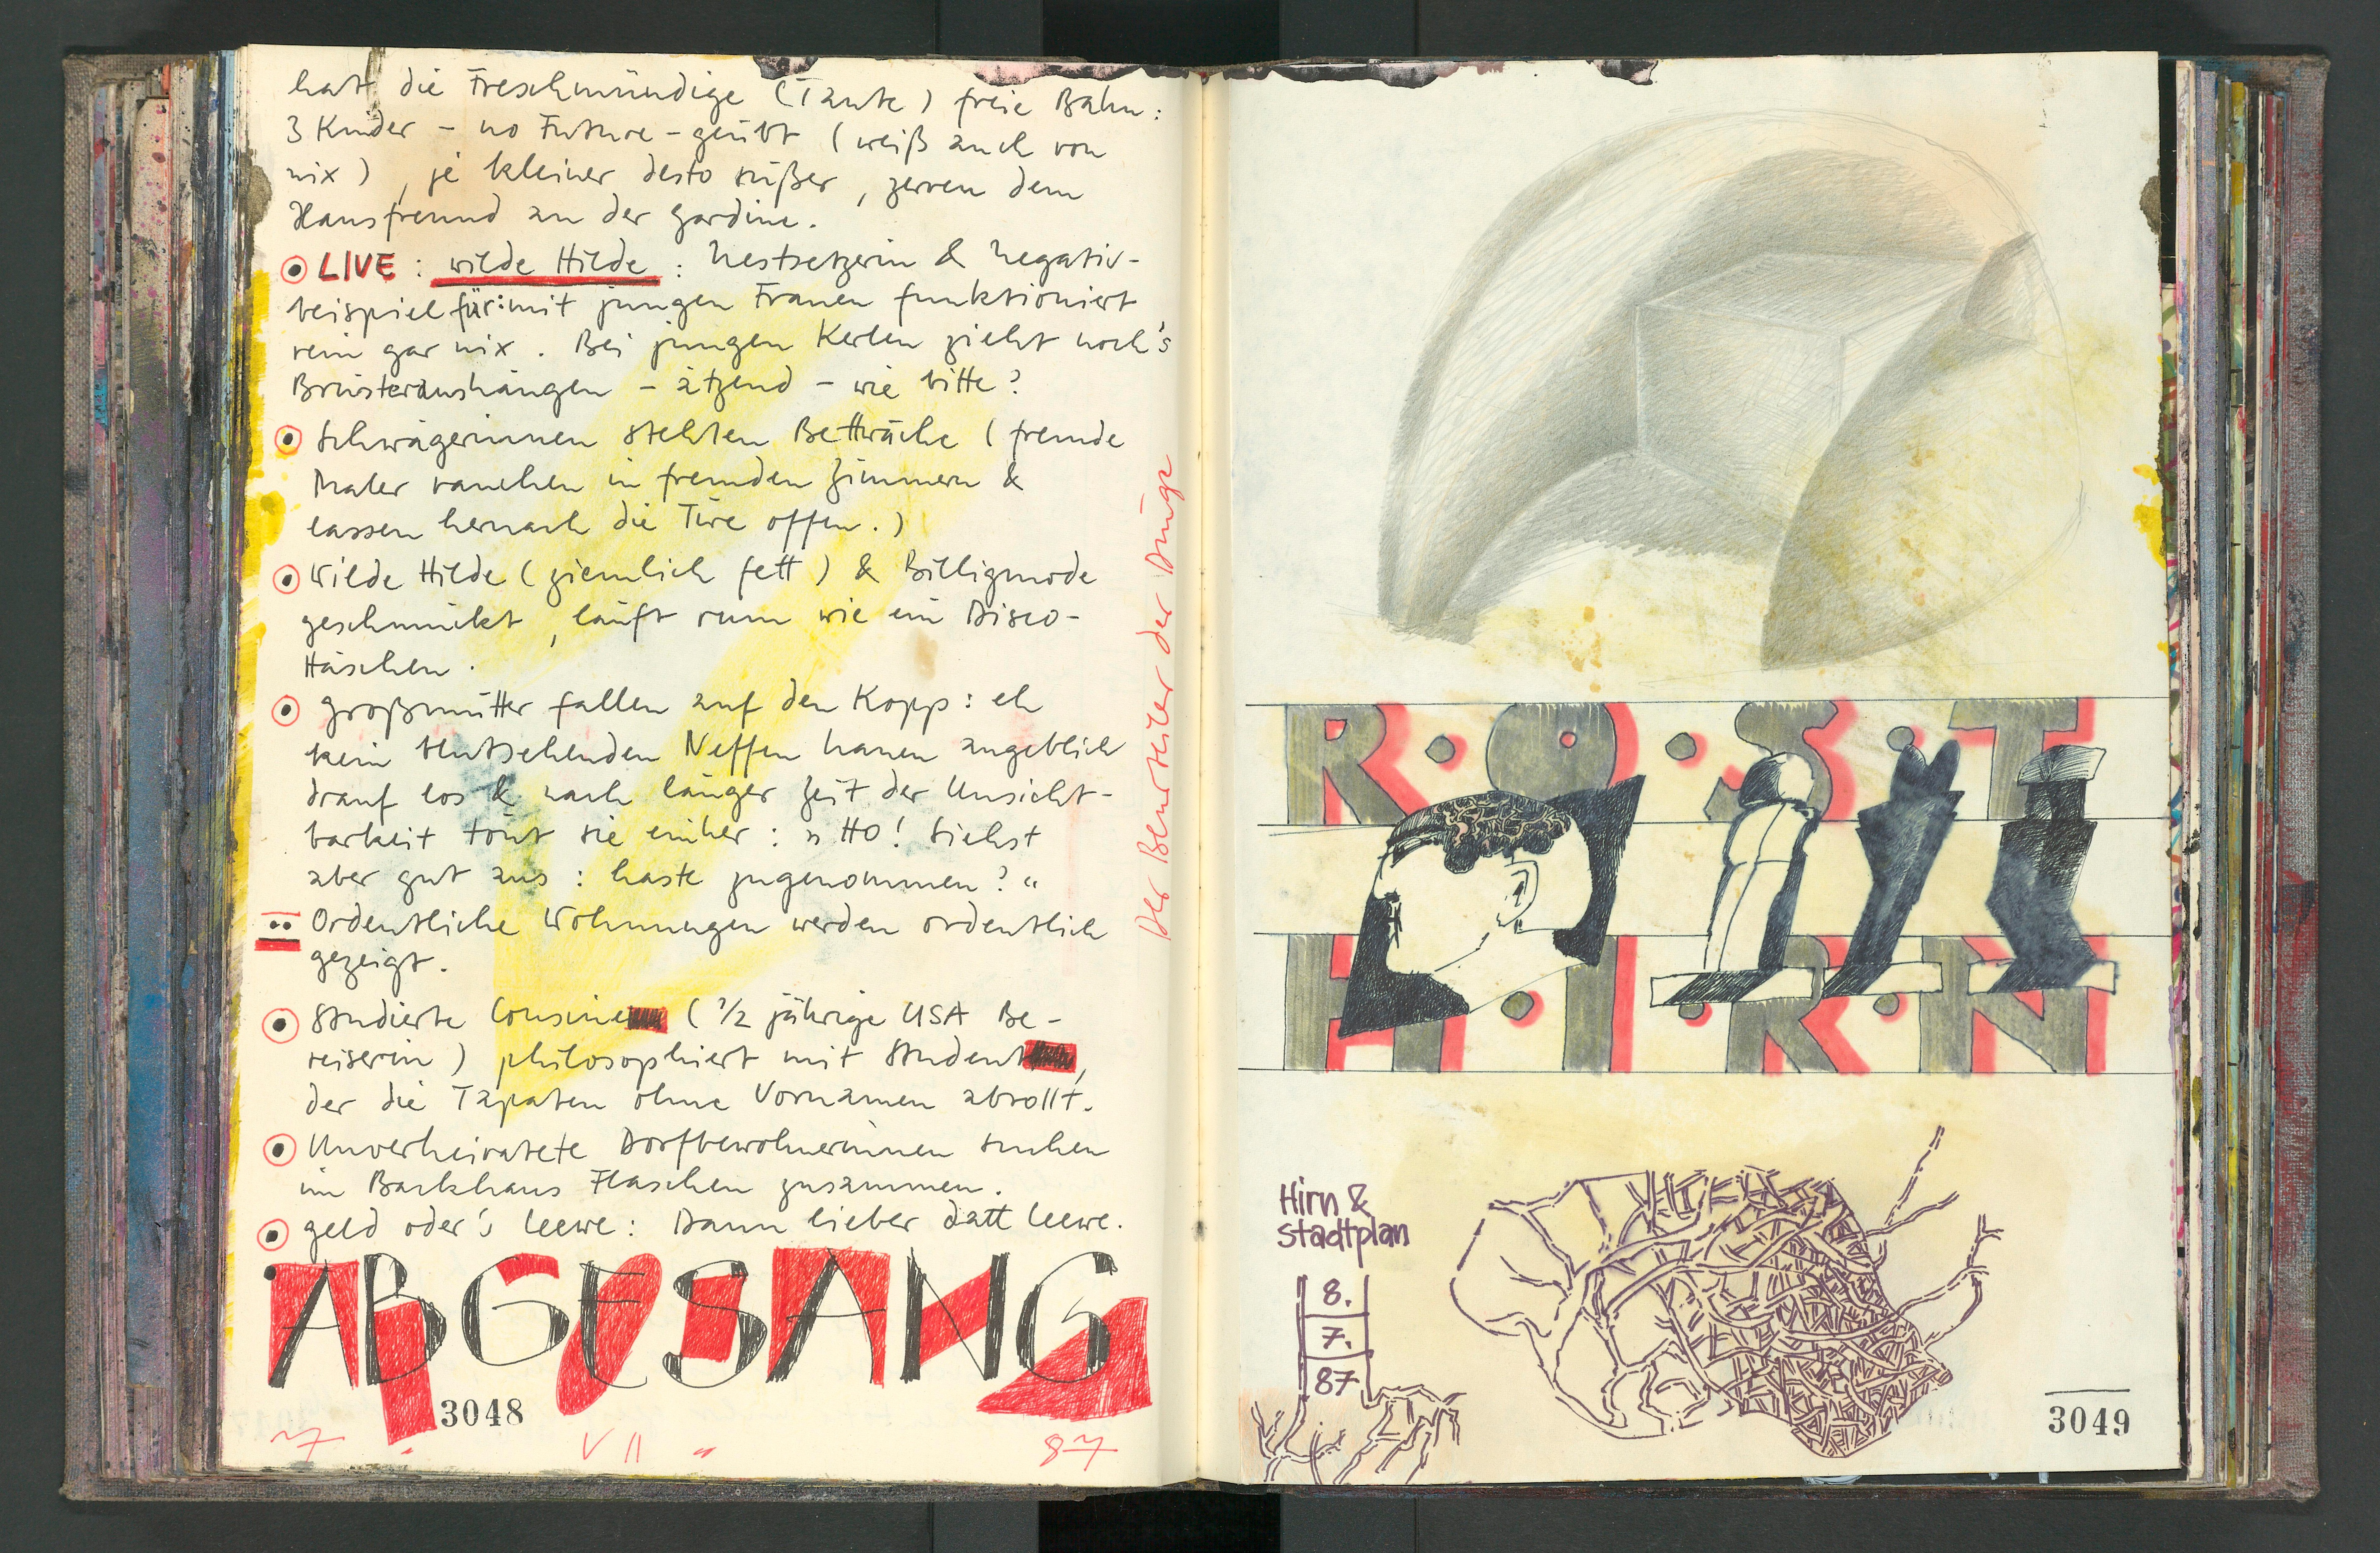 hat die Freschmündige (Tante) freie Bahn:
3 Kinder – no Future – geübt (weiß auch von
nix), je kleiner desto süßer, zerren dem
Hausfreund an der Gardine.
LIVE: wilde Hilde: Nestsetzerin & Negativ-
beispiel für: mit jungen Frauen funktioniert
rein gar nix. Bei jungen Kerlen zieht noch's
Brüsteraushängen – ätzend – wie bitte?
Schwägerinnen stehlen Bettwäche (fremde
Maler rauchen in fremden Zimmern &
lassen hernach die Türe offen.)
Wilde Hilde (ziemlich fett) & Billigmode
geschmückt, läuft rum wie ein Disco-
Häschen.
Großmütter fallen auf den Kopp: eh
kein Neffen hauen angeblich
drauf los & nach länger Zeit der Unsicht-
barkeit tönt sie einher: „HO! Siehst
aber gut aus: haste zugenommen?“
Ordentliche Wohnungen werden ordentlich
gezeigt.
Studierte Cousine (1/2 jährige USA Be-
reiserin) philosophiert mit Student,
der die Tapaten ohne Vornamen abrollt.
Unverheiratete Dorfbewohnerinnen suchen
im Backhaus Flaschen zusammen.
Geld oder's Leewe: Dann lieber datt Leewe.
ABGESANG
3048
7. VII 87
Der Beurteiler der Dinge
R·O·S·T
H·I·R·N
Hirn &
Stadtplan
8.
7.
87
3049